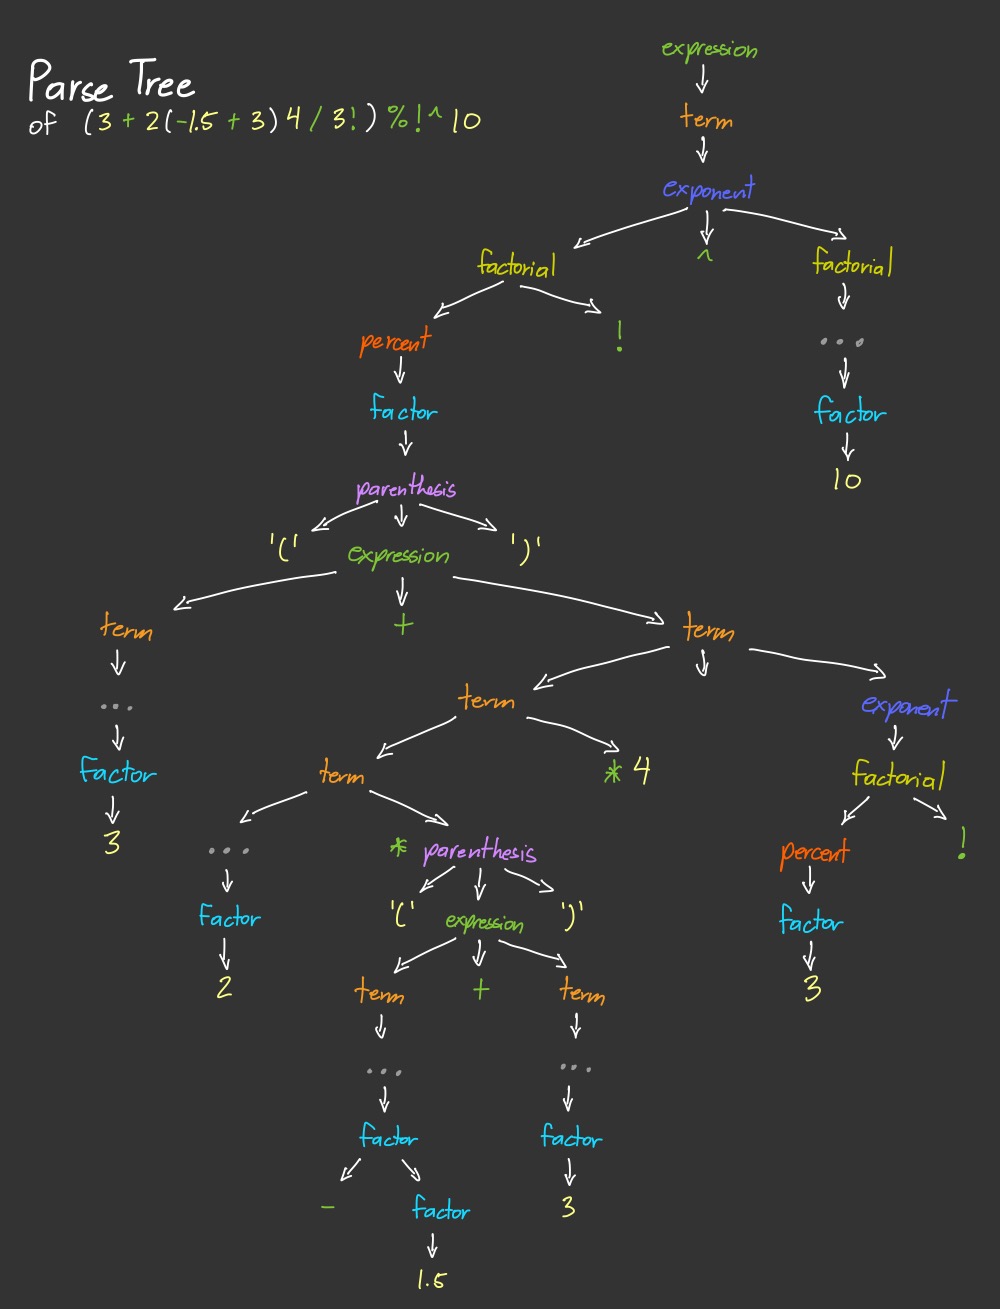 expression
Parse Tree
of (3 + 2(-1.5 + 3) 4 / 3!) %!^10
term
exponent
factorial ^ factorial
percent !
...
factor factor
parenthesis 10
'(' expression ')'
term + term
... term exponent
factor term * 4 factorial
3 ... * parenthesis percent !
factor '(' expression ')' factor
2 term + term 3
... ...
factor factor
- factor 3
1.5